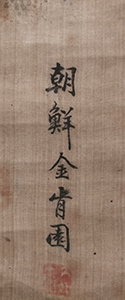 朝鮮金肯園